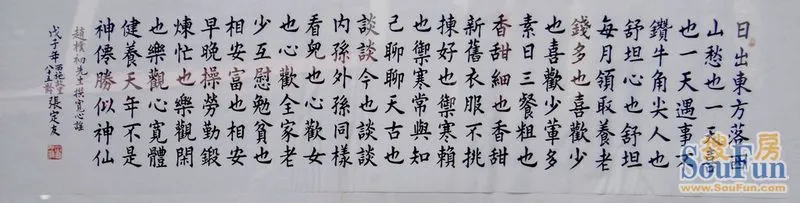 日出東方落西
山愁也一天喜
也一天遇事不
鑽牛角尖人也
舒坦心也舒坦
每月領取養老
錢多也喜歡少
也喜歡少葷多
素日三餐粗也
香甜細也香甜
新舊衣服不挑
揀好也禦寒賴
也禦寒常與知
己聊聊天古也
談談今也談談
内孫外孫同樣
看兒也心歡女
也心歡全家老
少互慰勉貧也
相安富也相安
早晚操勞勤鍛
煉忙也樂觀閑
也樂觀心寬體
健養天年不是
神僊勝似神仙
趙樸初先生撰寬心謠
戊子年 張定友
搜房
SouFun
www.SouFun.com